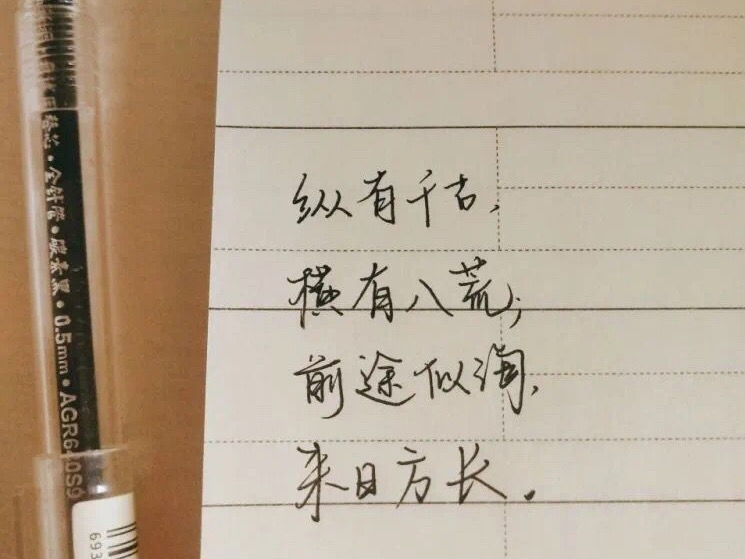 纵有千古,
横有八荒;
前途似海,
来日方长.
替芯·全针管·碳素黑·0.5mm·AGR640S9
693